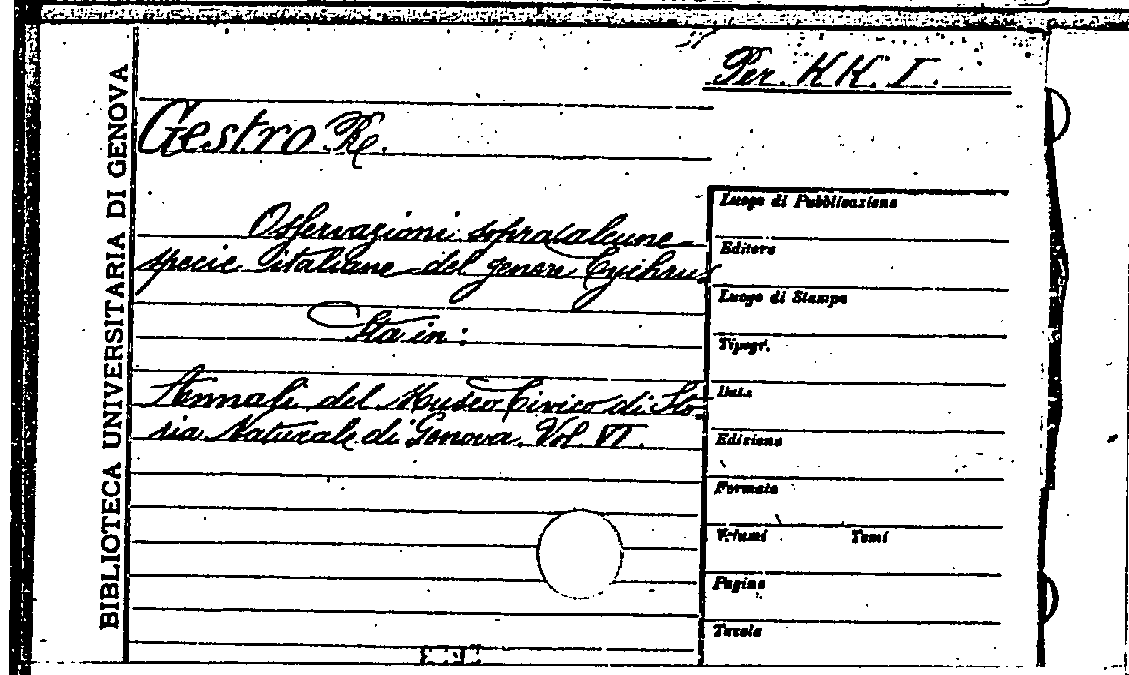 BIBLIOTECA UNIVERSITARIA DI GENOVA
Per. KK. I.
Gestro R.
Osservazioni sopra alcune
specie italiane del genere Cychrus
Sta in:
Annali del Museo Civico di Sto-
ria Naturale di Genova. Vol. VI.
Luogo di Pubblicazione
Editore
Luogo di Stampa
Tipogr.
Data
Edizione
Formato
Volumi Tomi
Pagine
Tavole